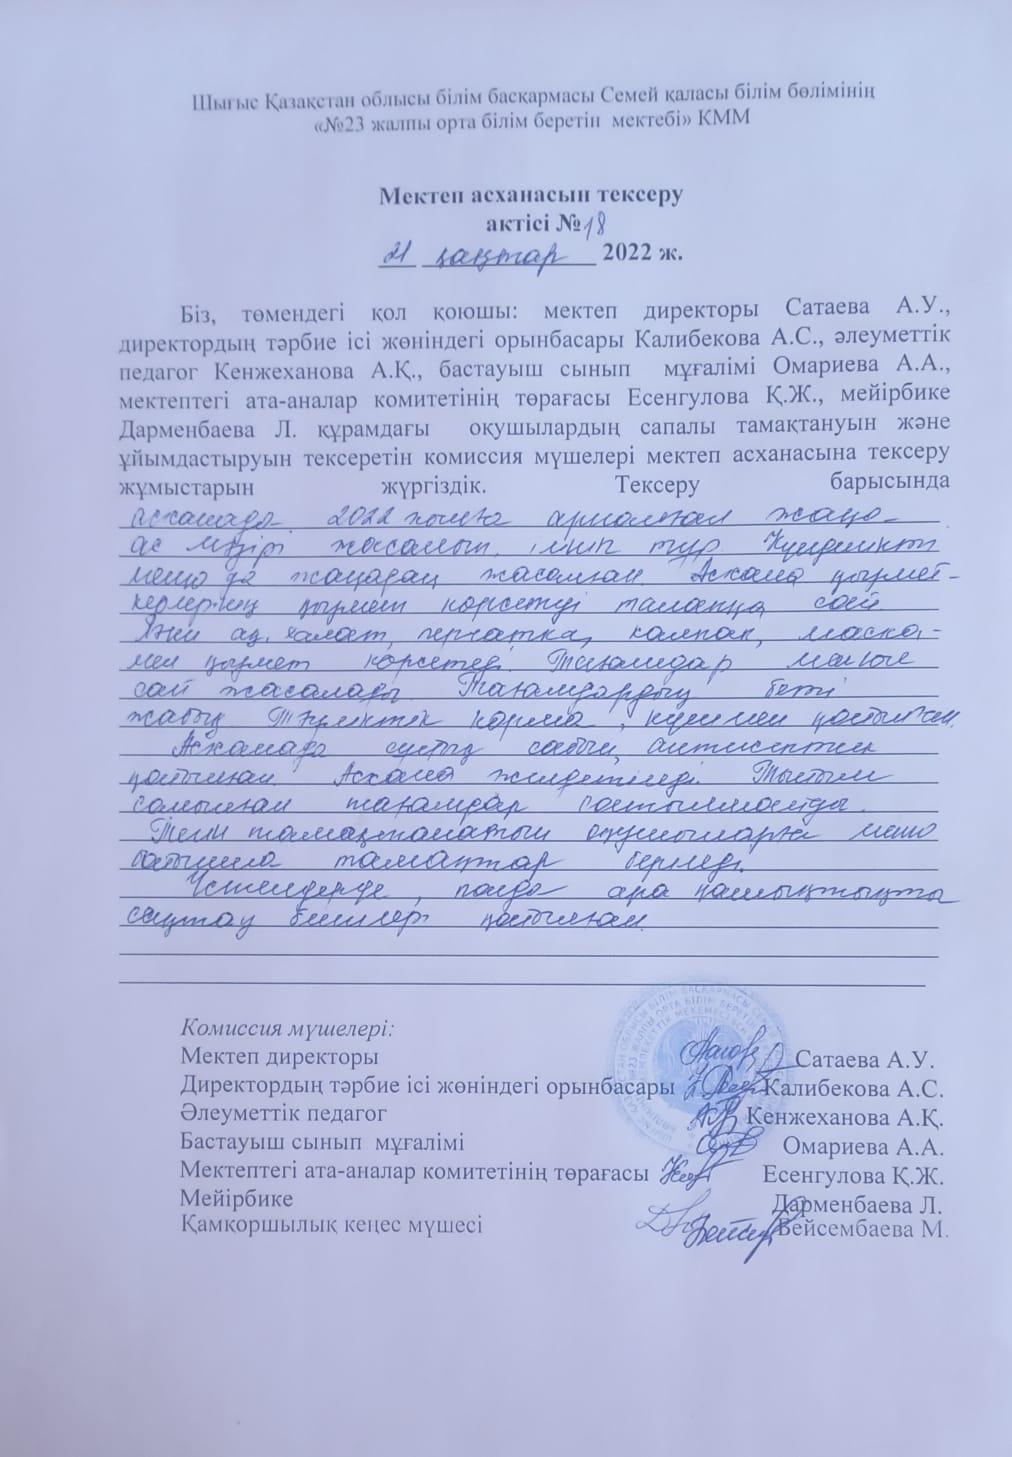 Шығыс Қазақстан облысы білім басқармасы Семей қаласы білім бөлімінің
«№23 жалпы орта білім беретін мектебі» КММ
Мектеп асханасын тексеру
актісі №18
21 қаңтар 2022 ж.
Біз, төмендегі қол қоюшы: мектеп директоры Сатаева А.У.,
директордың тәрбие ісі жөніндегі орынбасары Калибекова А.С., әлеуметтік
педагог Кенжеханова А.Қ., бастауыш сынып мұғалімі Омариева А.А.,
мектептегі ата-аналар комитетінің төрағасы Есенгулова Қ.Ж., мейірбике
Дарменбаева Л. құрамдағы оқушылардың сапалы тамақтануын және
ұйымдастыруын тексеретін комиссия мүшелері мектеп асханасына тексеру
жұмыстарын жүргіздік. Тексеру барысында
асханада 2022 жылға арналған жаңа
ас мәзірі жасалып, ілініп тұр. Күнделікті
меню де жаңадан жасалған. Асхана қызмет-
керлерінің қызмет көрсетуі талапқа сай.
халат, перчатка, калпак, маска-
мен қызмет көрсетеді. Тағамдар менюге
сай жасалады. Тағамдардың беті
жабық. Тәуліктік норма, күнімен қойылған.
Асханада сұйық сабын, антисептик
қойылған. Асхана желдетіледі. Тыйым
салынған тағамдар сатылмайды.
Тегін тамақтанатын оқушыларға меню
бойынша тамақтар беріледі.
Үстелдерде, полда ара қашықтықты
сақтау белгілері қойылған.
Комиссия мүшелері:
Мектеп директоры Сатаева А.У.
Директордың тәрбие ісі жөніндегі орынбасары Калибекова А.С.
Әлеуметтік педагог Кенжеханова А.Қ.
Бастауыш сынып мұғалімі Омариева А.А.
Мектептегі ата-аналар комитетінің төрағасы Есенгулова Қ.Ж.
Мейірбике Дарменбаева Л.
Қамқоршылық кеңес мүшесі Бейсембаева М.